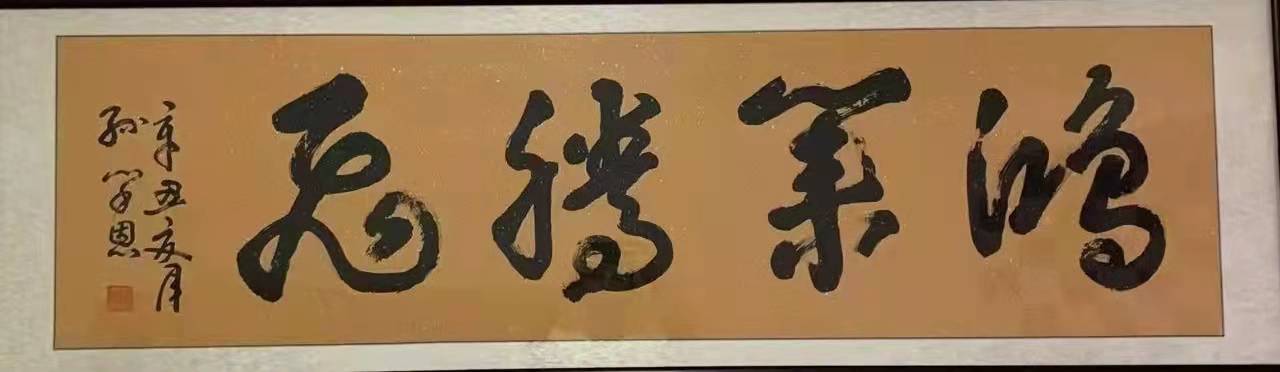 鸿業腾飛
辛丑夏月
孙学恩